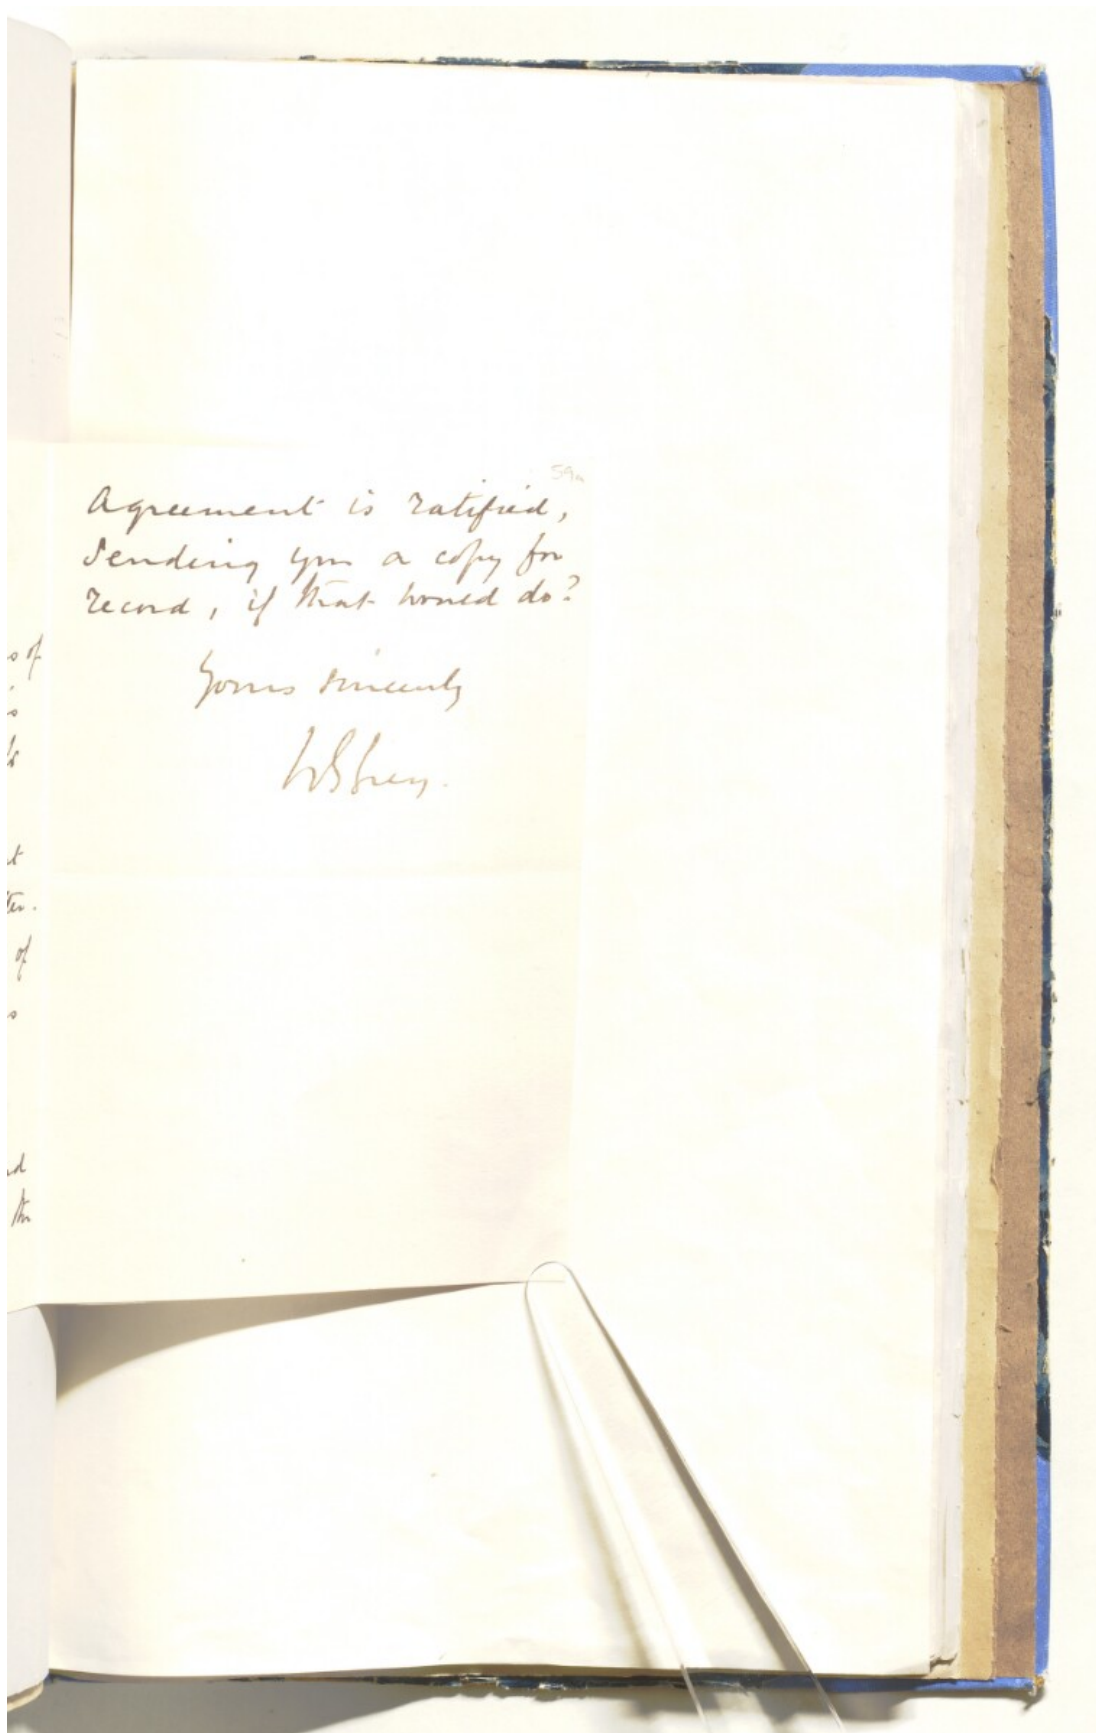 59a
Agreement is ratified,
sending you a copy for
record, if that would do?
Yours sincerely
WGGrey.
of
of